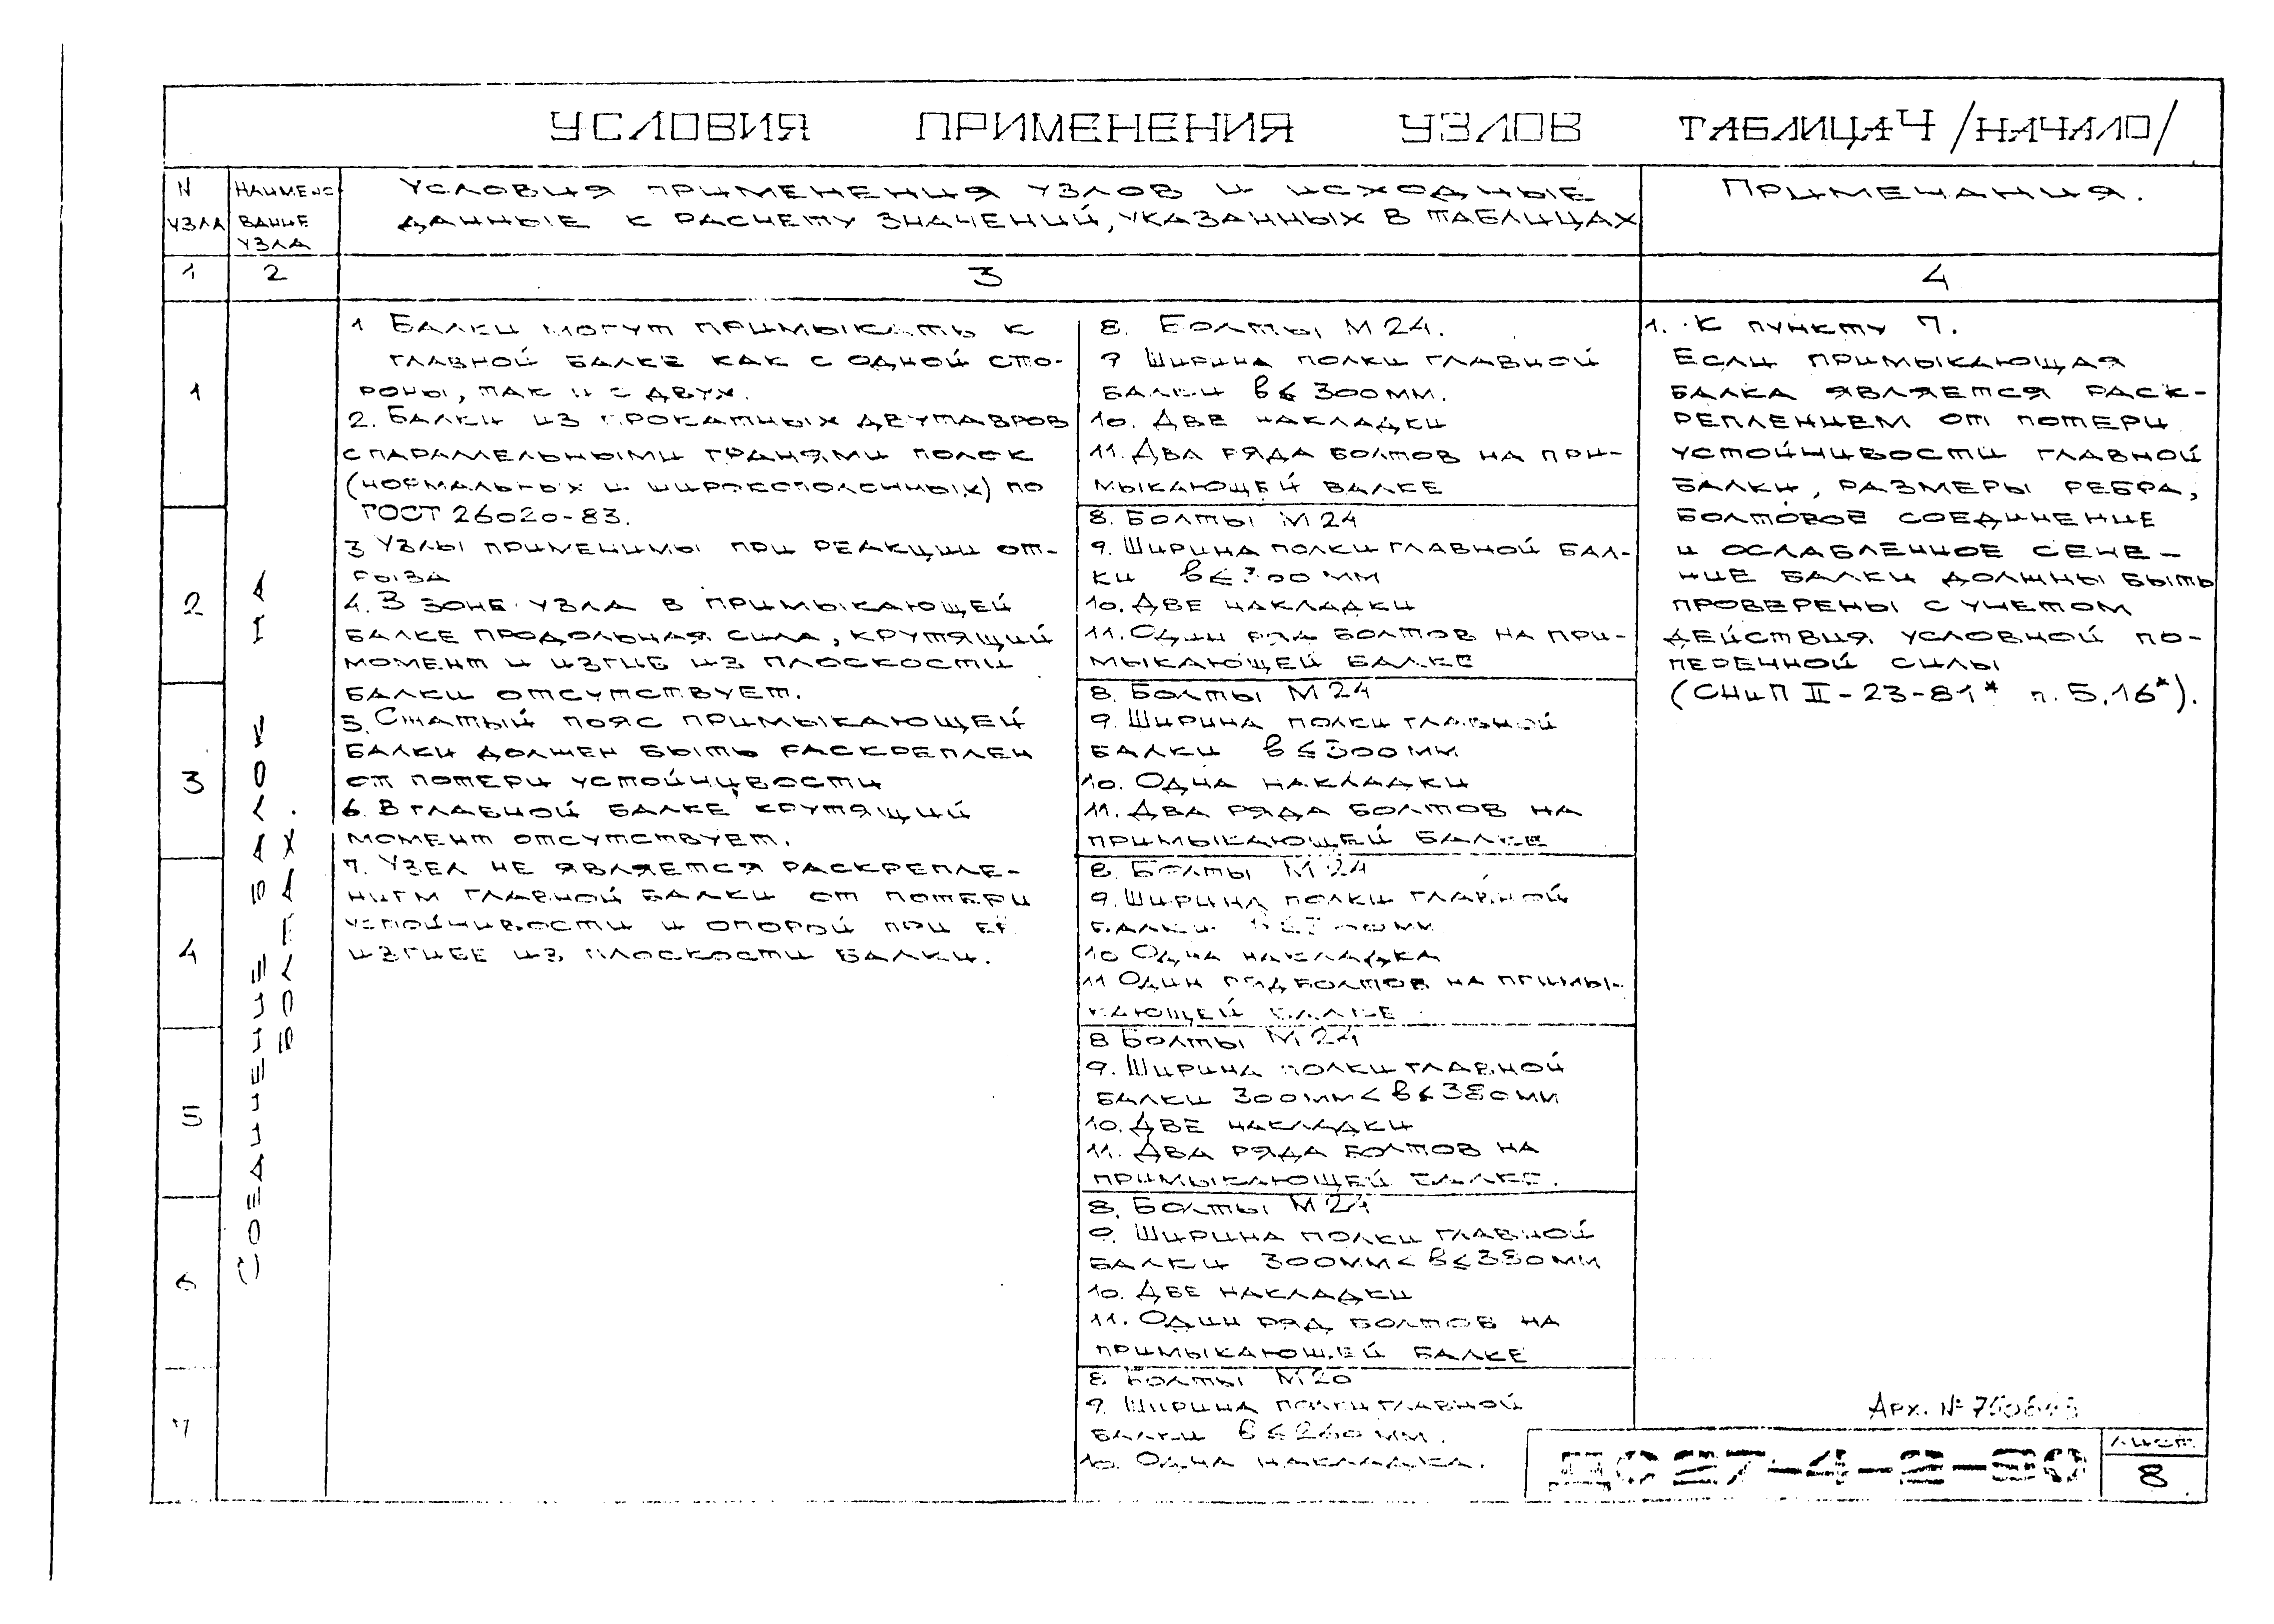 УСЛОВИЯ ПРИМЕНЕНИЯ УЗЛОВ ТАБЛИЦА 4 /НАЧАЛО/
N
УЗЛА
НАИМЕНО
ВАНИЕ
УЗЛА
УСЛОВИЯ ПРИМЕНЕНИЯ УЗЛОВ И ИСХОДНЫЕ
ДАННЫЕ К РАСЧЕТУ ЗНАЧЕНИЙ, УКАЗАННЫХ В ТАБЛИЦАХ
ПРИМЕЧАНИЯ.
1
2
3
4
1
2
3
4
5
6
7
СОЕДИНЕНИЕ БАЛОК НА
БОЛТАХ.
1 БАЛКИ МОГУТ ПРИМЫКАТЬ К
ГЛАВНОЙ БАЛКЕ КАК С ОДНОЙ СТО-
РОНЫ, ТАК И С ДВУХ.
2. БАЛКИ ИЗ ПРОКАТНЫХ ДВУТАВРОВ
С ПАРАЛЛЕЛЬНЫМИ ГРАНЯМИ ПОЛОК
(НОРМАЛЬНЫХ И ШИРОКОПОЛОЧНЫХ) ПО
ГОСТ 26020-83.
3 УЗЛЫ ПРИМЕНИМЫ ПРИ РЕАКЦИИ ОТ-
РЫВА
4. В ЗОНЕ УЗЛА В ПРИМЫКАЮЩЕЙ
БАЛКЕ ПРОДОЛЬНАЯ СИЛА, КРУТЯЩИЙ
МОМЕНТ И ИЗГИБ ИЗ ПЛОСКОСТИ
БАЛКИ ОТСУТСТВУЕТ.
5. СЖАТЫЙ ПОЯС ПРИМЫКАЮЩЕЙ
БАЛКИ ДОЛЖЕН БЫТЬ РАСКРЕПЛЕН
ОТ ПОТЕРИ УСТОЙЧИВОСТИ
6. В ГЛАВНОЙ БАЛКЕ КРУТЯЩИЙ
МОМЕНТ ОТСУТСТВУЕТ.
7. УЗЕЛ НЕ ЯВЛЯЕТСЯ РАСКРЕПЛЕ-
НИЕМ ГЛАВНОЙ БАЛКИ ОТ ПОТЕРИ
УСТОЙЧИВОСТИ И ОПОРОЙ ПРИ ЕЁ
ИЗГИБЕ ИЗ ПЛОСКОСТИ БАЛКИ.
8. БОЛТЫ М24.
9 ШИРИНА ПОЛКИ ГЛАВНОЙ
БАЛКИ в≤300ММ.
10. ДВЕ НАКЛАДКИ
11. ДВА РЯДА БОЛТОВ НА ПРИ-
МЫКАЮЩЕЙ БАЛКЕ
8. БОЛТЫ М24
9. ШИРИНА ПОЛКИ ГЛАВНОЙ БАЛ-
КИ в≤300ММ
10. ДВЕ НАКЛАДКИ
11. ОДИН РЯД БОЛТОВ НА ПРИ-
МЫКАЮЩЕЙ БАЛКЕ
8. БОЛТЫ М24
9. ШИРИНА ПОЛКИ ГЛАВНОЙ
БАЛКИ в≤300ММ
10. ОДНА НАКЛАДКИ
11. ДВА РЯДА БОЛТОВ НА
ПРИМЫКАЮЩЕЙ БАЛКЕ
8. БОЛТЫ М24
9. ШИРИНА ПОЛКИ ГЛАВНОЙ
БАЛКИ
10 ОДНА НАКЛАДКА
11 ОДИН РЯД БОЛТОВ НА ПРИМЫ-
КАЮЩЕЙ БАЛКЕ
8 БОЛТЫ М24
9. ШИРИНА ПОЛКИ ГЛАВНОЙ
БАЛКИ 300ММ<в≤380ММ
10. ДВЕ НАКЛАДКИ
11. ДВА РЯДА БОЛТОВ НА
ПРИМЫКАЮЩЕЙ БАЛКЕ.
8. БОЛТЫ М24
9. ШИРИНА ПОЛКИ ГЛАВНОЙ
БАЛКИ 300ММ<в≤380ММ
10. ДВЕ НАКЛАДКИ
11. ОДИН РЯД БОЛТОВ НА
ПРИМЫКАЮЩЕЙ БАЛКЕ
8 БОЛТЫ М20
9. ШИРИНА ПОЛКИ ГЛАВНОЙ
БАЛКИ в≤260ММ.
10. ОДНА НАКЛАДКА.
1. К ПУНКТУ 7.
ЕСЛИ ПРИМЫКАЮЩАЯ
БАЛКА ЯВЛЯЕТСЯ РАСК-
РЕПЛЕНИЕМ ОТ ПОТЕРИ
УСТОЙЧИВОСТИ ГЛАВНОЙ
БАЛКИ, РАЗМЕРЫ РЕБРА,
БОЛТОВОЕ СОЕДИНЕНИЕ
И ОСЛАБЛЕННОЕ СЕЧЕ-
НИЕ БАЛКИ ДОЛЖНЫ БЫТЬ
ПРОВЕРЕНЫ С УЧЕТОМ
ДЕЙСТВИЯ УСЛОВНОЙ ПО-
ПЕРЕЧНОЙ СИЛЫ
(СНиП II-23-81* п. 5.16*).
АРХ. №
ДС27-4-2-90
ЛИСТ
8